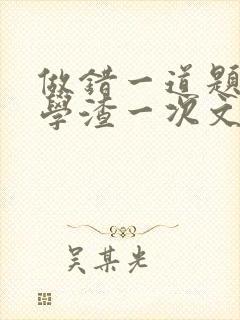 做错一道题
學渣一次文
吴某光